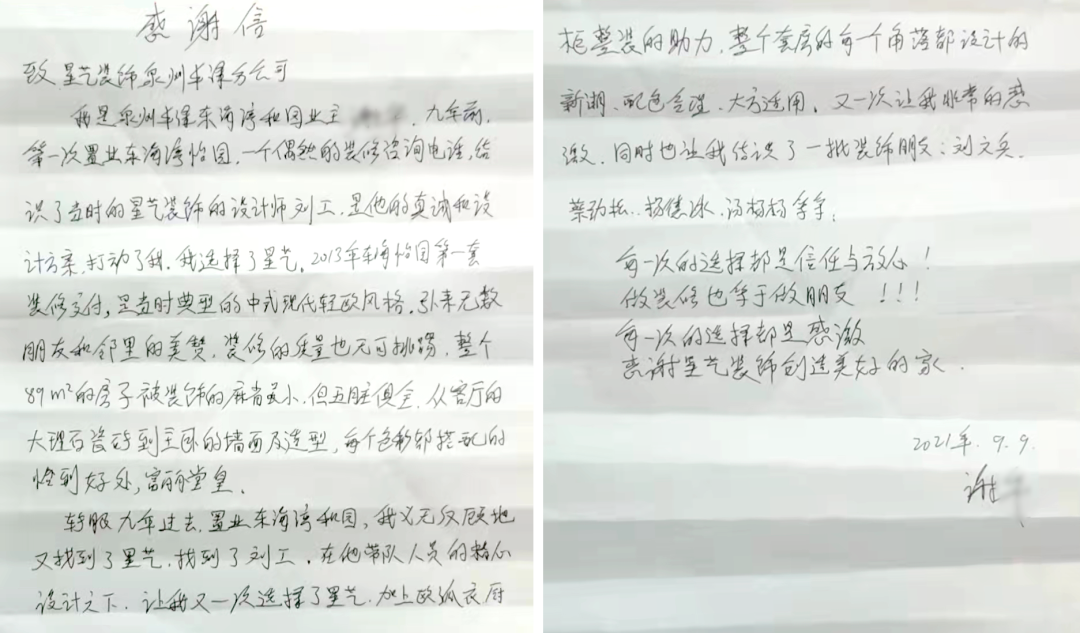 感谢信
致星艺装饰泉州丰泽分公司
我是泉州丰泽东海湾和园业主 九年前，
第一次置业东海湾怡园，一个偶然的装修咨询电话，结
识了当时的星艺装饰的设计师刘工，是他的真诚和设
计方案，打动了我，我选择了星艺。2013年东海怡园第一套
装修交付，是当时典型的中式现代轻欧风格，引来无数
朋友和邻里的美赞，装修的质量也无可挑踢，整个
89m²的房子被装饰的麻省虽小，但五脏俱全，从客厅的
大理石瓷砖到主卧的墙面及造型，每个色彩都搭配的
恰到好处，富丽堂皇。
转眼九年过去，置业东海湾和园，我义无反顾地
又找到了星艺，找到了刘工，在他带队人员的精心
设计之下，让我又一次选择了星艺，加上欧派衣厨
柜整装的助力，整个套房的每一个角落都设计的
新潮、配色合理、大方适用，又一次让我非常的感
激，同时也让我结识了一批装饰朋友：刘文兵、
蔡劲松、杨 冰、汤杨杨等等；
每一次的选择都是信任与放心！
做装修也等于做朋友！！！
每一次的选择都是感激
感谢星艺装饰创造美好的家．
2021年．9．9．
谢